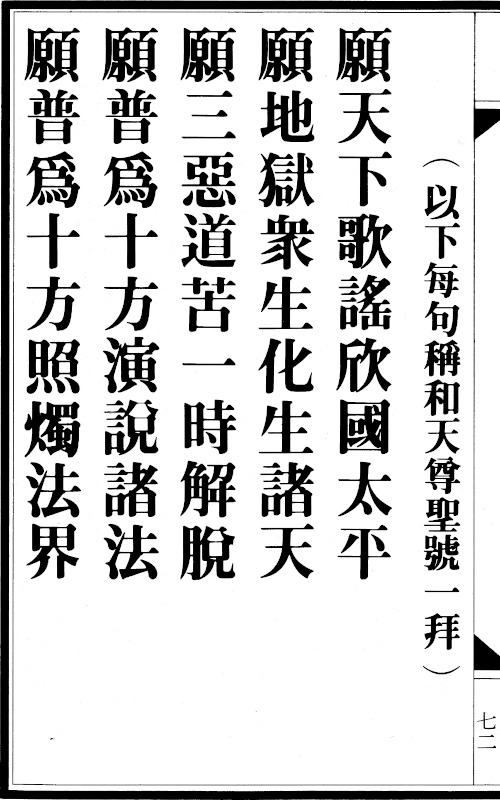 （以下每句稱和天尊聖號一拜）
願天下歌謠欣國太平
願地獄衆生化生諸天
願三惡道苦一時解脫
願普爲十方演說諸法
願普爲十方照燭法界
七二